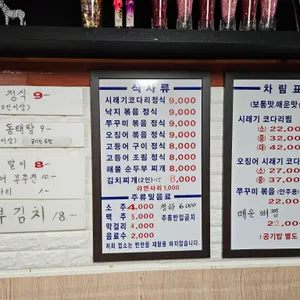 정식 9-
동태탕 9-
말이 8-
김치 18-
식사류
시래기 코다리 정식 9,000
낙지 볶음 정식 9,000
쭈꾸미 볶음 정식 9,000
오징어 볶음 정식 9,000
고등어 구이 정식 8,000
고등어 조림 정식 8,000
해물 순두부 찌개 8,000
김치찌개(2인) 8,000
라면사리 1,000
주류및음료
소주 4,000 청하 6,000
맥주 5,000 주류반입금지
막걸리 4,000
음료수 2,000
저희 업소는 반찬을 재활용 하지않습니다.
차림표
(보통맛,매운맛
시래기 코다리찜
(소) 22,0
(중) 32,0
(대) 42,0
오징어 시래기 코다
(중) 27,0
(대) 37,0
쭈꾸미 볶음 (안주용)
22,00
매운
22,000
(공기밥 별도